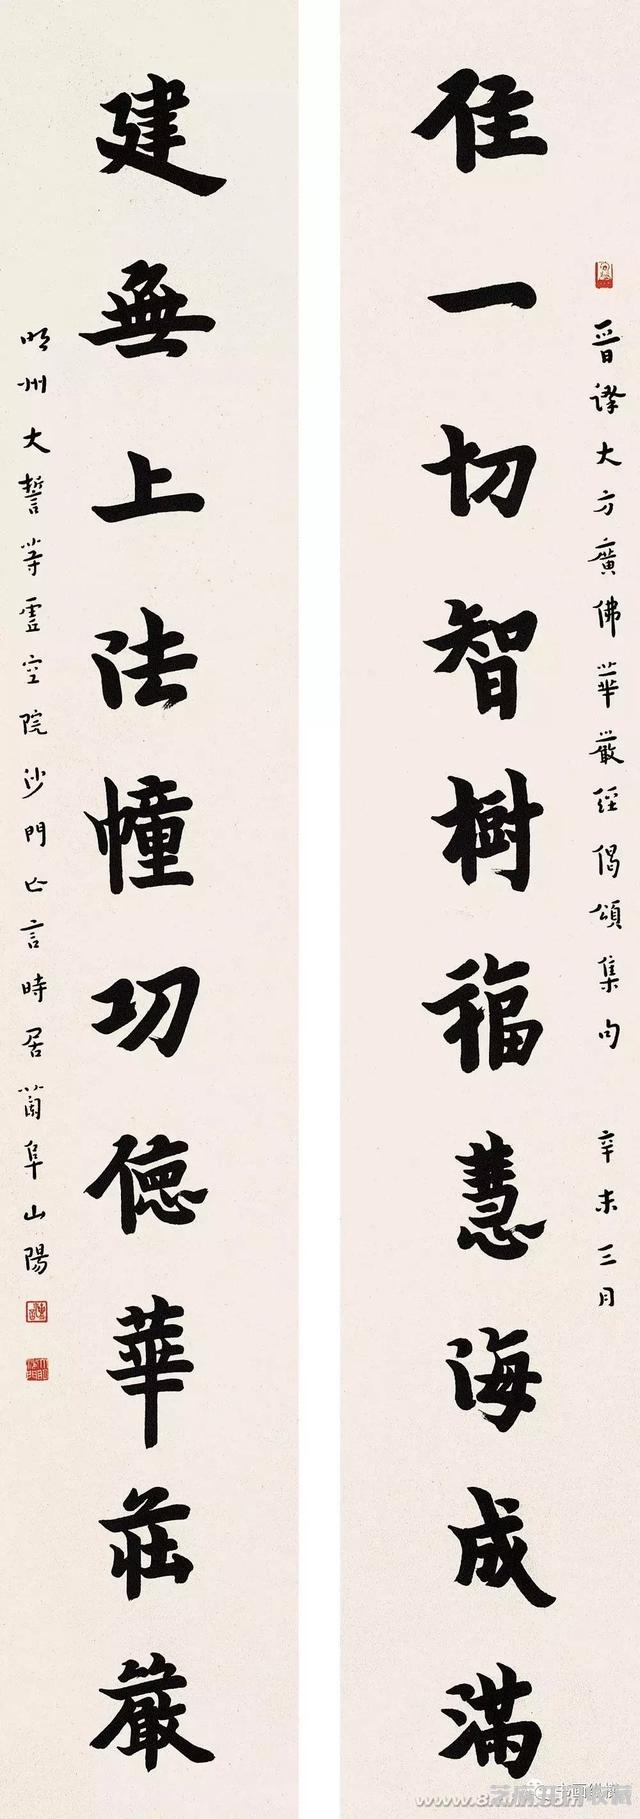 晉譯大方廣佛華嚴經偈頌集句 辛未三月
住一切智樹福慧海成滿
建無上法幢功德華莊嚴
明州大誓等虛空院沙門亡言時居蘭阜山陽